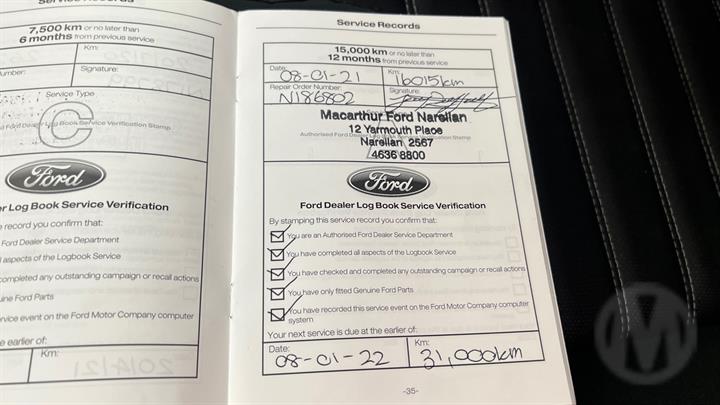 Service Records
7,500 km or no later than
6 months from previous service
Km:
Number:
Signature:
Service Type
C
Ford Dealer Log Book Service Verification Stamp
Ford
Dealer Log Book Service Verification
record you confirm that:
Ford Dealer Service Department
aspects of the Logbook Service
completed any outstanding campaign or recall actions
Genuine Ford Parts
service event on the Ford Motor Company computer
earlier of:
Km:
Service Records
15,000 km or no later than
12 months from previous service
Date: 08-01-21
Km: 16015km
Repair Order Number: N186802
Signature:
Macarthur Ford Narellan
12 Yarmouth Place
Authorised Ford Dealer Log Book Service Verification Stamp
Narellan 2567
4636 8800
Ford
Ford Dealer Log Book Service Verification
By stamping this service record you confirm that:
You are an Authorised Ford Dealer Service Department
You have completed all aspects of the Logbook Service
You have checked and completed any outstanding campaign or recall actions
You have only fitted Genuine Ford Parts
You have recorded this service event on the Ford Motor Company computer
system
Your next service is due at the earlier of:
Date: 08-01-22
Km: 31,000km
-35-
M